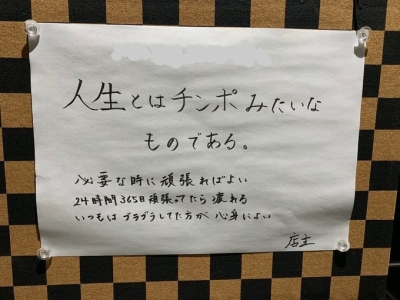 人生とはチンポみたいな
ものである。
必要な時に頑張ればよい
24時間365日頑張ってたら疲れる
いつもはブラブラしてた方が心身によい
店主